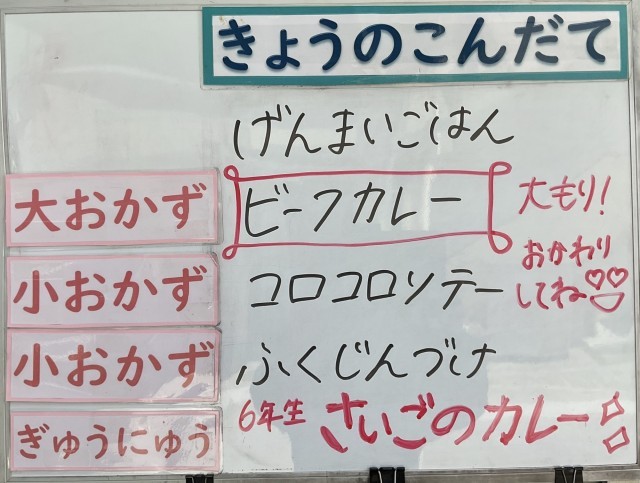 きょうのこんだて
げんまいごはん
大おかず
ビーフカレー
大もり!
おかわり
してね
小おかず
コロコロソテー
小おかず
ふくじんづけ
ぎゅうにゅう
6年生 さいごのカレー